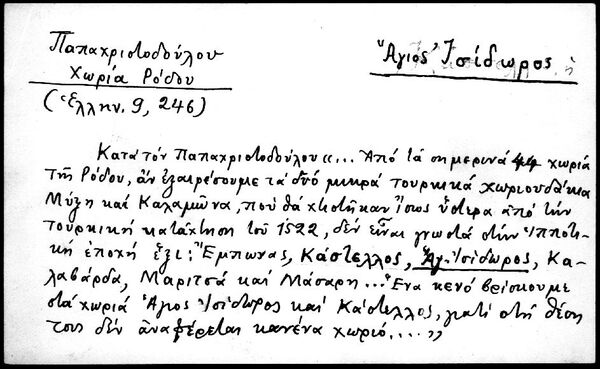 Παπαχριστοδούλου
Χωριά Ρόδου
(Ἑλλην. 9, 246)
Ἅγιος Ἰσίδωρος
Κατά τόν Παπαχριστοδούλου «... Ἀπό τά σημερινά 44 χωριά
τῆς Ρόδου, ἄν ἐξαιρέσουμε τά δυό μικρά τουρκικά χωριουδάκια
Μύξη καί Καλαμῶνα, πού θά χτίστηκαν ἴσως ὕστερα ἀπό τήν
τουρκική κατάκτηση τοῦ 1522, δέν εἶναι γνωστά στήν Ἱπποτι-
κή ἐποχή ἕξι: Ἔμπωνας, Κάστελλος, Ἅγ. Ἰσίδωρος, Κα-
λαβάρδα, Μαριτσά καί Μάσαρη... Ἕνα κενό βρίσκουμε
στά χωριά Ἅγιος Ἰσίδωρος καί Κάστελλος, γιατί στή θέση
τους δέν ἀναφέρεται κανένα χωριό....»